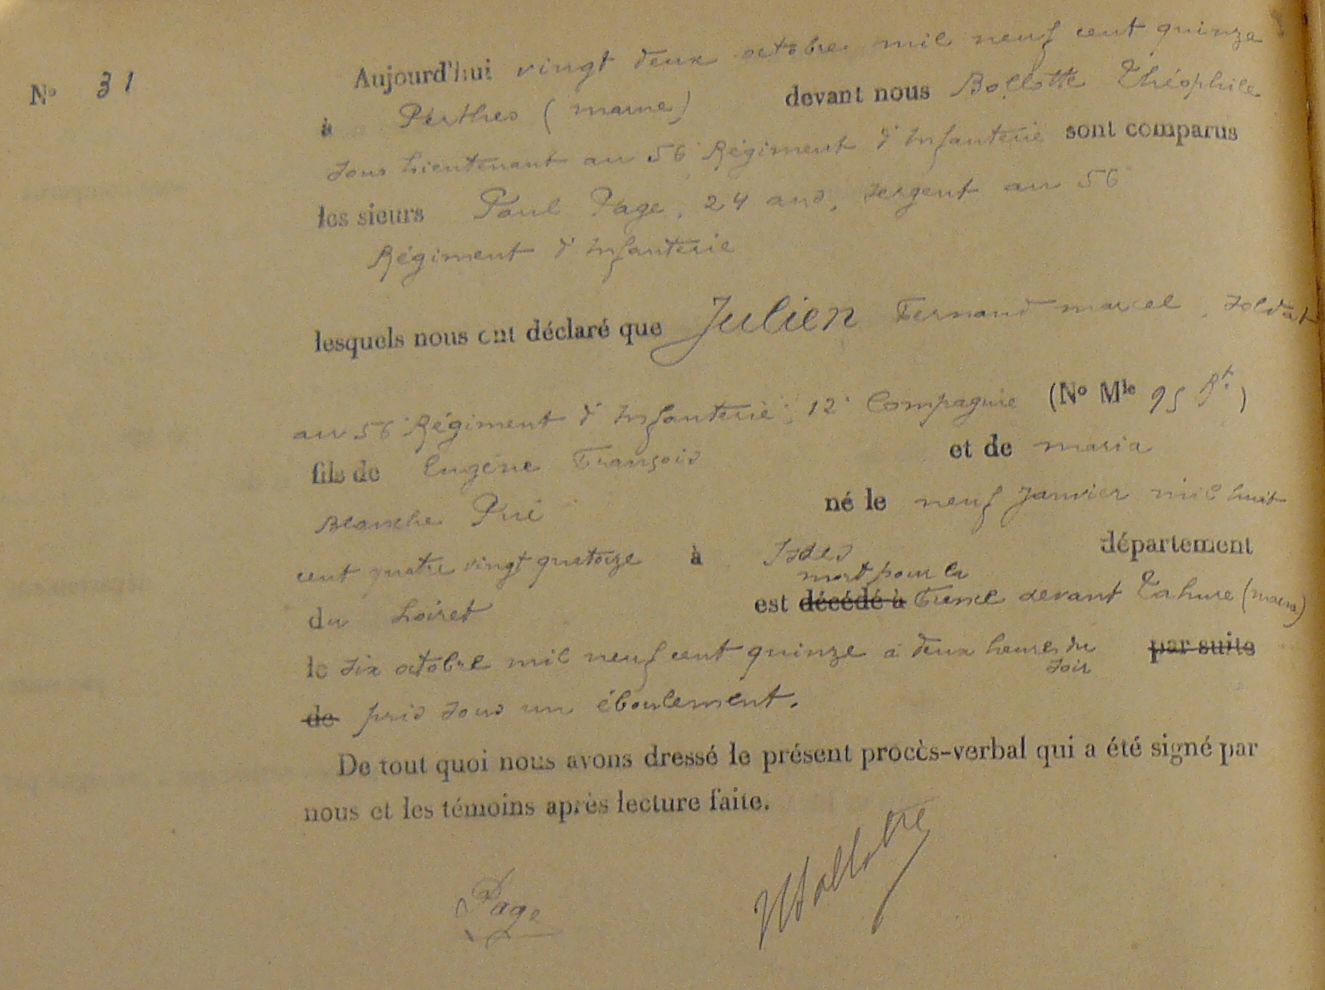 N° 31
Aujourd'hui vingt deux octobre mil neuf cent quinze
à Perthes (marne) devant nous Bollotte Théophile
sous lieutenant au 56 Régiment d'Infanterie sont comparus
les sieurs Paul Page, 24 ans, sergent au 56
Régiment d'Infanterie
lesquels nous ont déclaré que Julien Fernand marcel, soldat
au 56 Régiment d'Infanterie, 12 Compagnie (N° Mle 95 Rt)
fils de Eugène François et de maria
Blanche Pué né le neuf Janvier mil huit
cent quatre vingt quatorze à Isdes département
du Loiret est décédé à mort pour la France devant Tahure (marne)
le six octobre mil neuf cent quinze à deux heures du soir par suite
de pris sous un éboulement.
De tout quoi nous avons dressé le présent procès-verbal qui a été signé par
nous et les témoins après lecture faite.
Page Bollotte